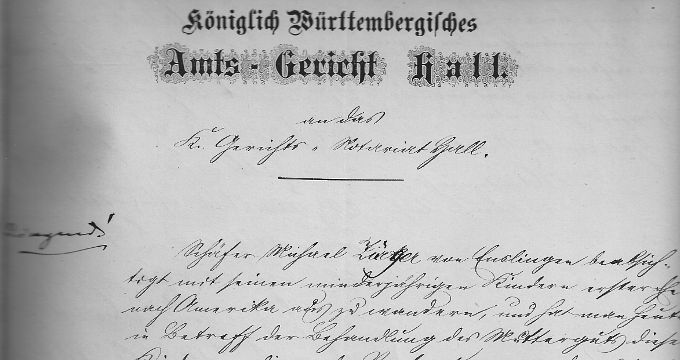 Königlich Württembergisches
Amts-Gericht Hall.
an das
K. Gerichts-Notariat Hall.
Dringend!
Schäfer Michael von Enslingen beabsich-
tigt mit seinen minderjährigen Kindern erster Ehe
nach Amerika auszuwandern, und hat man heute
in Betreff der Behandlung des Mutterguts diese